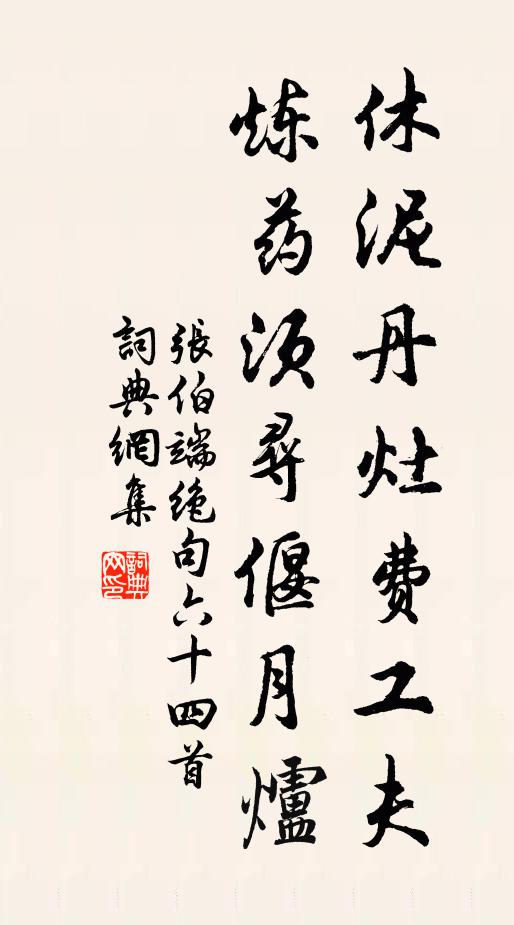 休泥丹灶费工夫
炼药须寻偃月爐
張伯端绝句六十四首
詞典網集
詞典网印